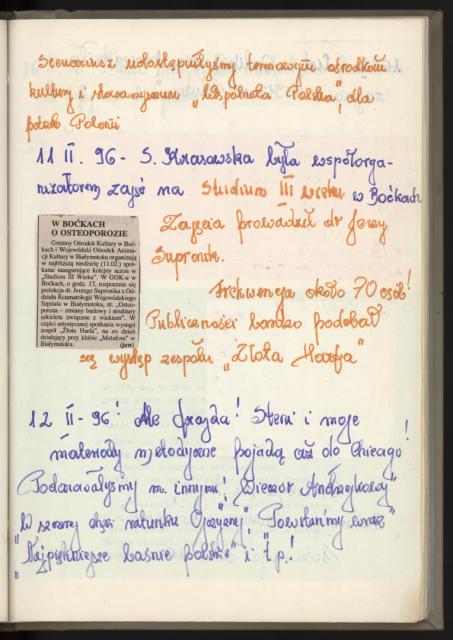 Scenariusz udostępniłyśmy terenowym ośrodkom
kultury i stowarzyszeniu „Wspólnota Polska”, dla
potrzeb Polonii
11 II. 96 - S. Krasowska była współorga-
nizatorem zajęć na Studium III wieku w Boćkach
W BOĆKACH
O OSTEOPOROZIE
Gminny Ośrodek Kultury w Boć-
kach i Wojewódzki Ośrodek Anima-
cji Kultury w Białymstoku organizują
w najbliższą niedzielę (11.02.) spot-
kanie inaugurujące kolejny sezon w
„Studium III Wieku”. W GOK-u w
Boćkach, o godz. 17, rozpocznie się
prelekcja dr. Jerzego Supronika z Od-
działu Reumatologii Wojewódzkiego
Szpitala w Białymstoku, nt. „Osteo-
poroza – zmiany budowy i struktury
szkieletu związane z wiekiem”. W
części artystycznej spotkania wystąpi
zespół „Złota Harfa”, na co dzień
działający przy klubie „Metafora” w
Białymstoku. (jaw)
Zajęcia prowadził dr Jerzy
Supronik.
Frekwencja około 70 osób!
Publiczności bardzo podobał
się występ zespołu „Złota Harfa”
12 II - 96! Ale frajda! Steni i moje
materiały metodyczne pojadą aż do Chicago!
Podarowałyśmy m. innymi: „Wieczór Andrzejkowy”
„W szarej dłużi ratunku Ojczyzny”, „Powstańmy wraz”
„Najpiękniejsze baśnie polskie” i t.p.!